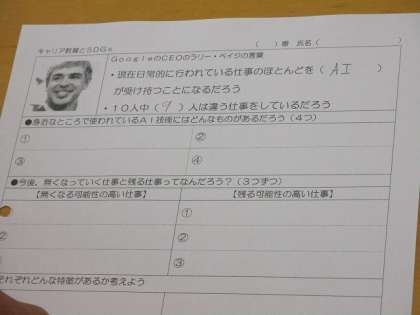 キャリア教育とSDGs （ ）番 氏名（ ）
GoogleのCEOのラリー・ペイジの言葉
・現在日常的に行われている仕事のほとんどを（ AI ）
が受け持つことになるだろう
・10人中（ 9 ）人は違う仕事をしているだろう
●身近なところで使われているAI技術にはどんなものがあるだろう（4つ）
① ②
③ ④
●今後、無くなっていく仕事と残る仕事ってなんだろう？（3つずつ）
【無くなる可能性の高い仕事】 【残る可能性の高い仕事】
①
② ②
③
それぞれどんな特徴があるか考えよう